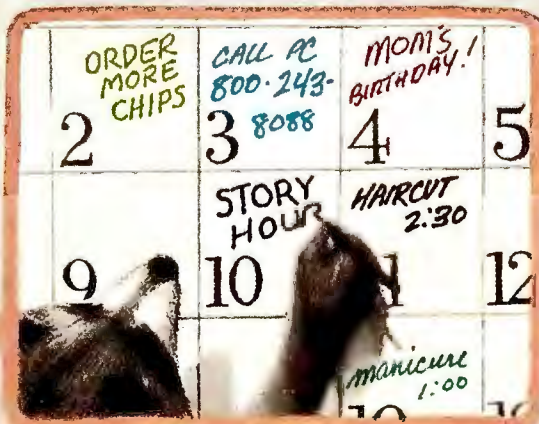 ORDER
MORE
CHIPS
2
CALL PC
800·243-
8088
3
MOM'S
BIRTHDAY!
4
5
9
STORY
HOUR
10
HAIRCUT
2:30
12
manicure
1:00